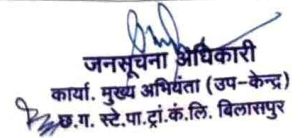 जनसूचना अधिकारी
कार्या. मुख्य अभियंता (उप-केन्द्र)
छ.ग. स्टे.पा.ट्रां.कं.लि. बिलासपुर